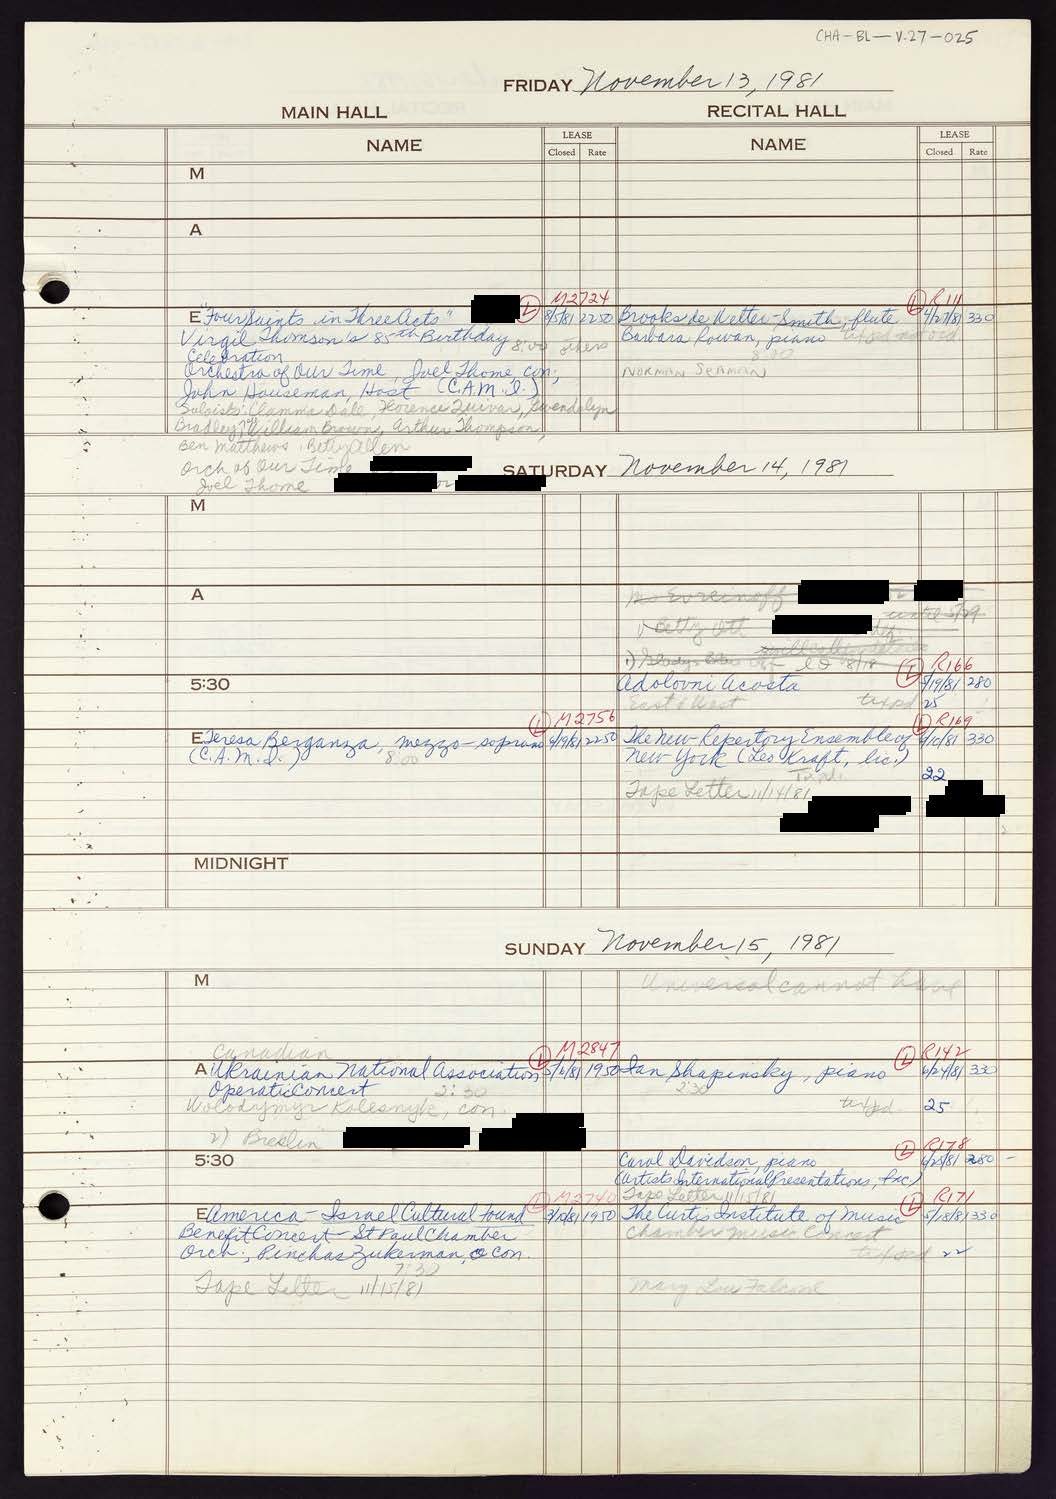 CHA-BL-V.27-025
FRIDAY November 13, 1981
MAIN HALL
RECITAL HALL
NAME
LEASE
Closed Rate
NAME
LEASE
Closed Rate
M
A
M2724
E "Four Saints in Three Acts" L 8/5/81 2250
Virgil Thomson's 85th Birthday 8:00
Celebration
Orchestra of Our Time, Joel Thome con;
John Houseman, Host (C.A.M.I.)
Soloists: Clamma Dale, Florence Quivar, Gwendolyn
Bradley, William Brown, Arthur Thompson,
Ben Matthews, Betty Allen
Orch of Our Time
Joel Thome or
R111
L
Brooks de Wetter-Smith, flute 4/27/81 330
Barbara Rowan, piano
8:00
NORMAN SEAMAN
SATURDAY November 14, 1981
M
A
Evreinoff
1) Betty
until 5/29
1) Gladys 8/18
5:30
L R166
Adolovni Acosta 9/19/81 280
East & West 25
L M2756
E Teresa Berganza, mezzo-soprano 9/9/81 2250
(C.A.M.I.) 8:00
L R169
The New Repertory Ensemble of 330
New York (Leo Kraft, lic.)
22
Tape Letter 11/14/81
MIDNIGHT
SUNDAY November 15, 1981
M
Universal cannot have
Canadian
L M2847
A Ukrainian National Association 1950
Operatic Concert 2:30
Wolodymyr Kolesnyk, con.
2) Breslin
L R142
Ian Shapinsky, piano 6/24/81 330
2:30
25
5:30
L R178
Carol Davidson, piano 280
(Artists International Presentations, Inc.)
Tape Letter 11/15/81
L M2740
E America-Israel Cultural Found 1950
Benefit Concert - St Paul Chamber
Orch.; Pinchas Zukerman, con.
7:30
Tape Letter 11/15/81
L R171
The Curtis Institute of Music 5/18/81 330
Chamber Music Concert
22
Mary Lou Falcone